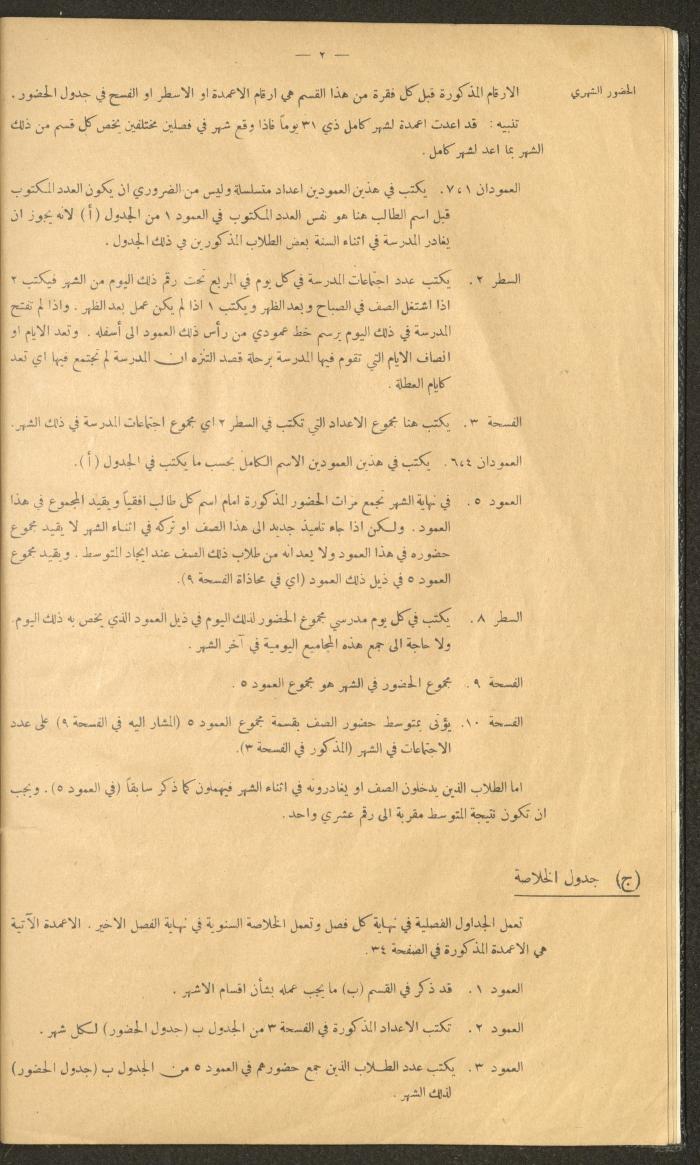 — ٢ —
الحضور الشهري
الارقام المذكورة قبل كل فقرة من هذا القسم هي ارقام الاعمدة او الاسطر او الفسح في جدول الحضور .
تنبيه : قد اعدت اعمدة لشهر كامل ذي ٣١ يوماً فاذا وقع شهر في فصلين مختلفين يخص كل قسم من ذلك
الشهر بما اعد لشهر كامل .
العمودان ٧،١. يكتب في هذين العمودين اعداد متسلسلة وليس من الضروري ان يكون العدد المكتوب
قبل اسم الطالب هنا هو نفس العدد المكتوب في العمود ١ من الجدول (أ) لانه يجوز ان
يغادر المدرسة في اثناء السنة بعض الطلاب المذكورين في ذلك الجدول .
السطر ٢. يكتب عدد اجتماعات المدرسة في كل يوم في المربع تحت رقم ذلك اليوم من الشهر فيكتب ٢
اذا اشتغل الصف في الصباح وبعد الظهر ويكتب ١ اذا لم يكن عمل بعد الظهر . واذا لم تفتح
المدرسة في ذلك اليوم يرسم خط عمودي من رأس ذلك العمود الى أسفله . وتعد الايام او
انصاف الايام التي تقوم فيها المدرسة برحلة قصد التنزه ان المدرسة لم تجتمع فيها اي تعد
كايام العطلة .
الفسحة ٣. يكتب هنا مجموع الاعداد التي تكتب في السطر ٢ اي مجموع اجتماعات المدرسة في ذلك الشهر.
العمودان ٦،٤. يكتب في هذين العمودين الاسم الكامل بحسب ما يكتب في الجدول (أ).
العمود ٥. في نهاية الشهر تجمع مرات الحضور المذكورة امام اسم كل طالب افقياً ويقيد المجموع في هذا
العمود . ولكن اذا جاء تلميذ جديد الى هذا الصف او تركه في اثناء الشهر لا يقيد مجموع
حضوره في هذا العمود ولا يعد انه من طلاب ذلك الصف عند ايجاد المتوسط . ويقيد مجموع
العمود ٥ في ذيل ذلك العمود (اي في محاذاة الفسحة ٩).
السطر ٨. يكتب في كل يوم مدرسي مجموع الحضور لذلك اليوم في ذيل العمود الذي يخص به ذلك اليوم.
ولا حاجة الى جمع هذه المجاميع اليومية في آخر الشهر .
الفسحة ٩. مجموع الحضور في الشهر هو مجموع العمود ٥ .
الفسحة ١٠. يؤتى بمتوسط حضور الصف بقسمة مجموع العمود ٥ (المشار اليه في الفسحة ٩) على عدد
الاجتماعات في الشهر (المذكور في الفسحة ٣).
اما الطلاب الذين يدخلون الصف او يغادرونه في اثناء الشهر فيهملون كما ذكر سابقاً (في العمود ٥). ويجب
ان تكون نتيجة المتوسط مقربة الى رقم عشري واحد.
(ج) جدول الخلاصة
تعمل الجداول الفصلية في نهاية كل فصل وتعمل الخلاصة السنوية في نهاية الفصل الاخير . الاعمدة الآتية
هي الاعمدة المذكورة في الصفحة ٣٤.
العمود ١. قد ذكر في القسم (ب) ما يجب عمله بشأن اقسام الاشهر .
العمود ٢. تكتب الاعداد المذكورة في الفسحة ٣ من الجدول ب (جدول الحضور) لكل شهر .
العمود ٣. يكتب عدد الطلاب الذين جمع حضورهم في العمود ٥ من الجدول ب (جدول الحضور)
لذلك الشهر .